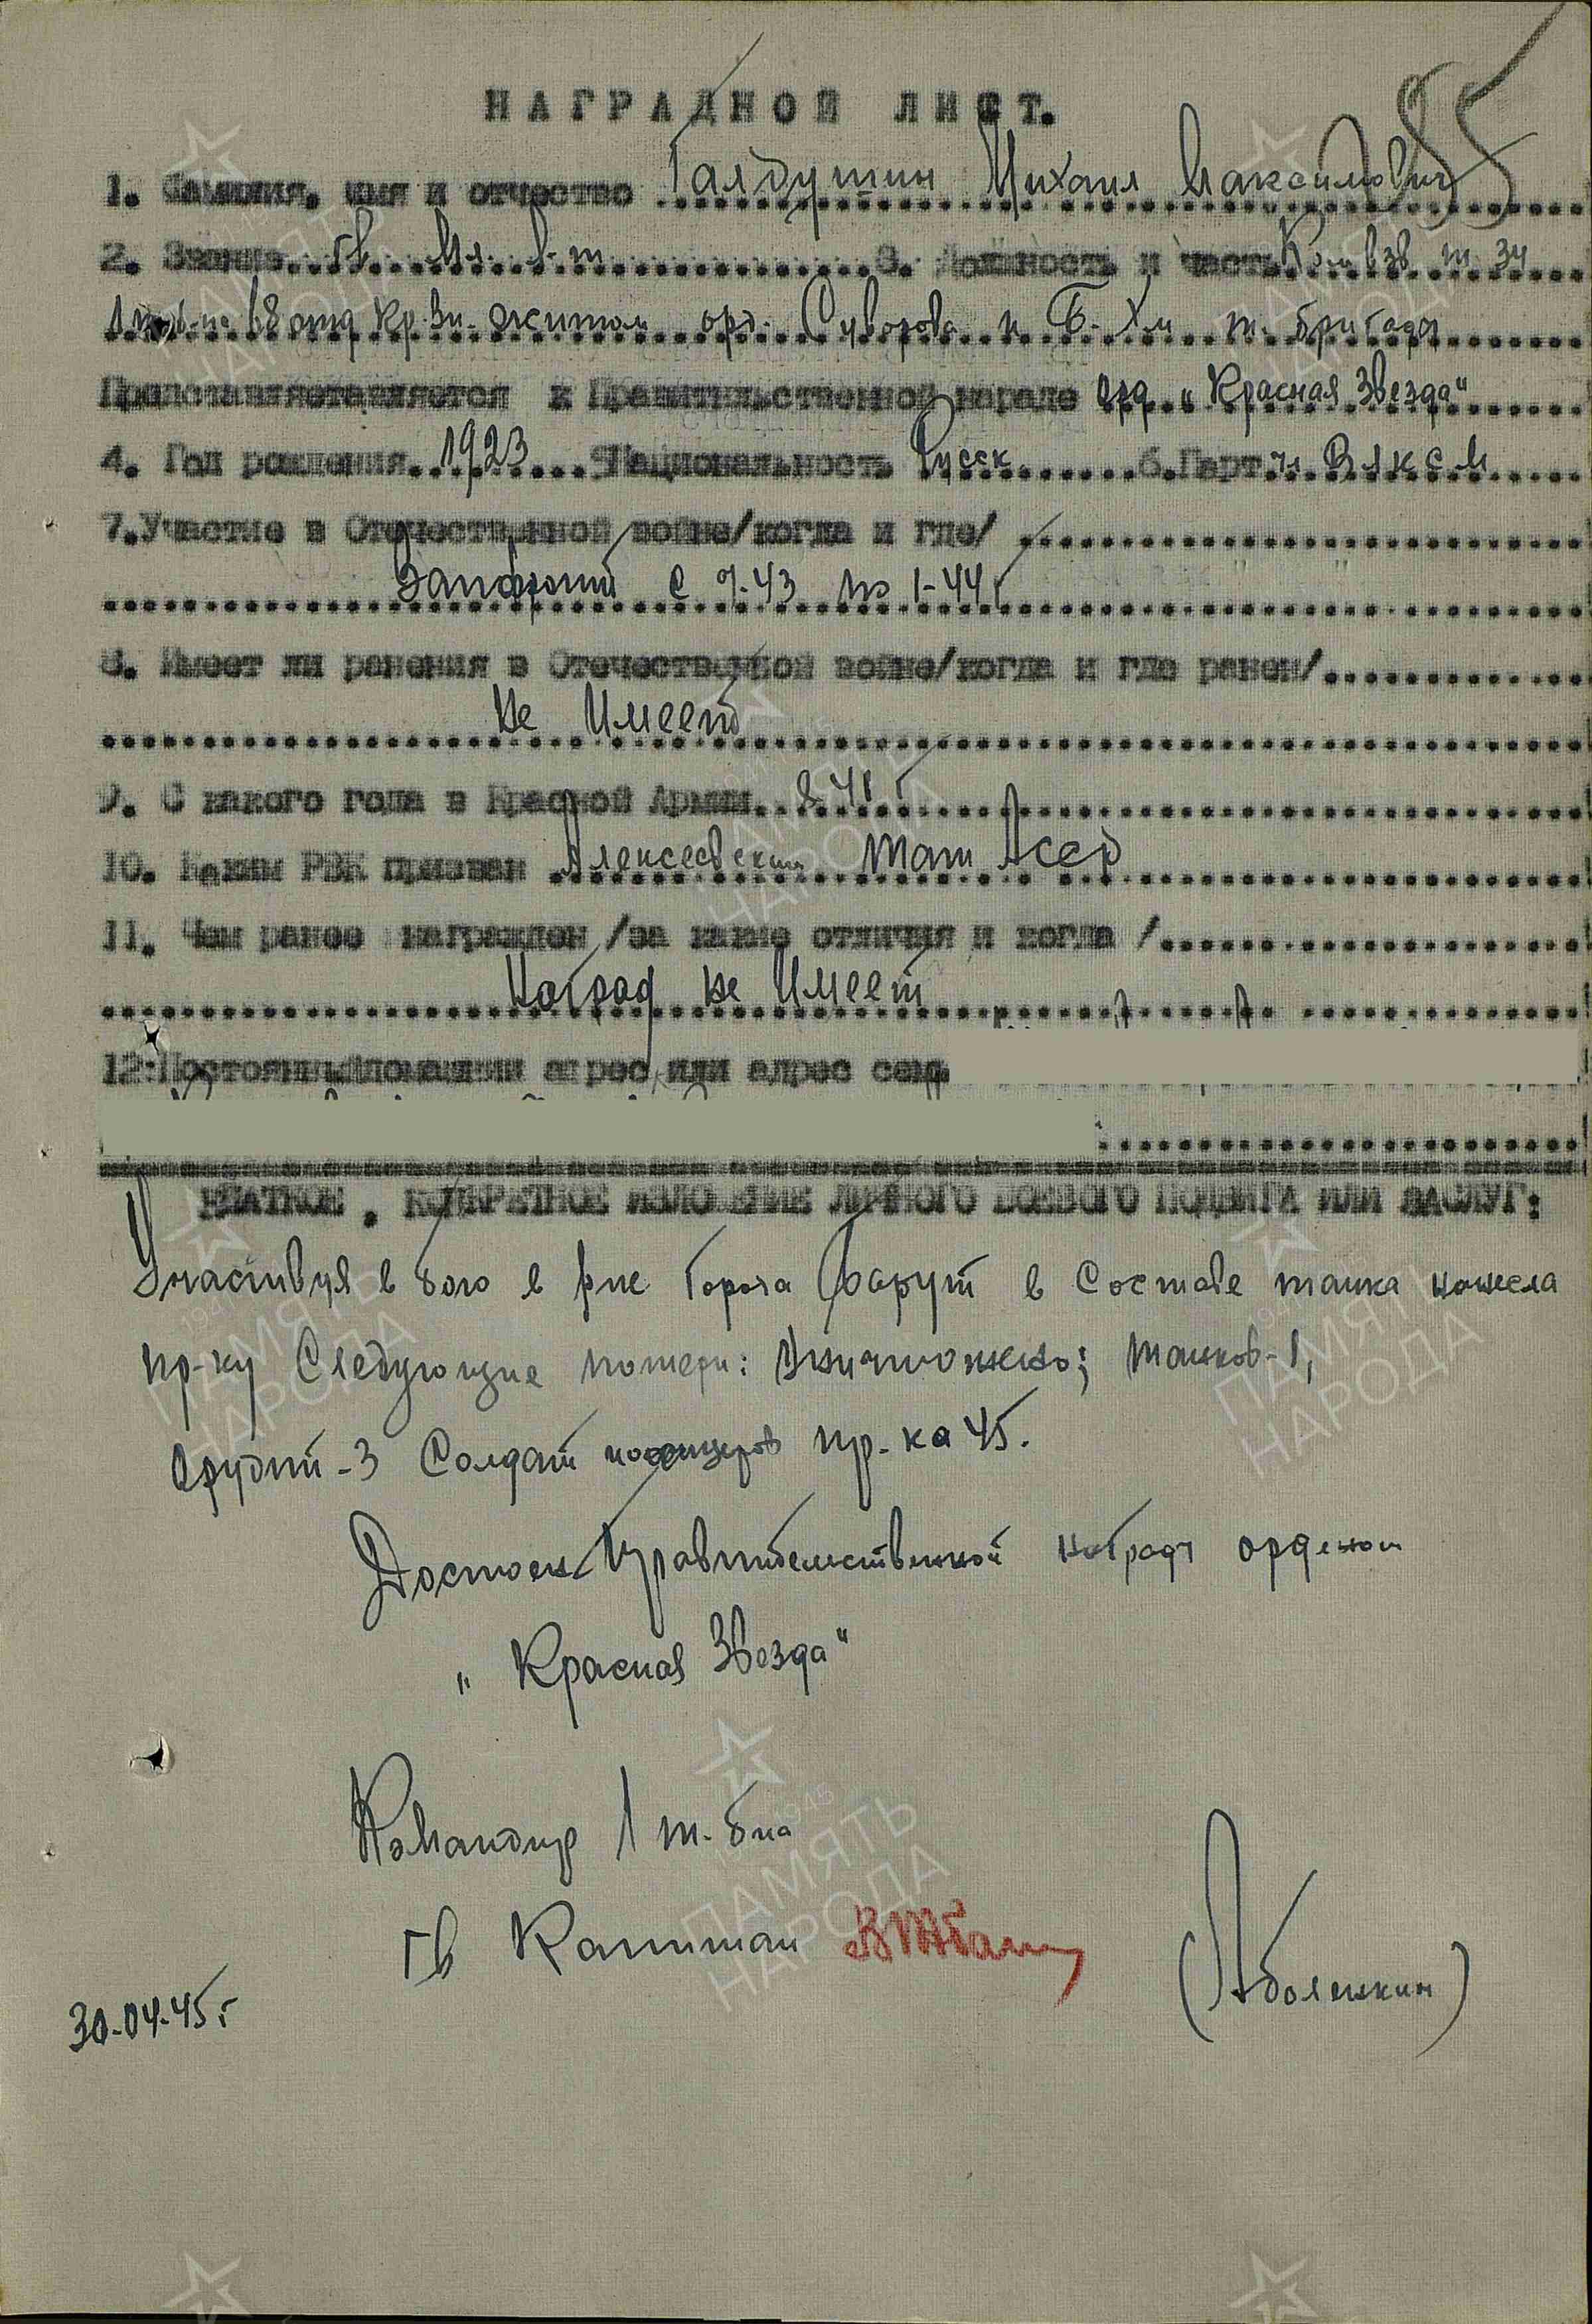 НАГРАДНОЙ ЛИСТ.
1. Фамилия, имя и отчество Галдушин Михаил Максимович
2. Звание гв. мл. л-т 3. Должность и часть Ком взв т 34
отд Кр. Зн. Житом орд. Суворова и Б. Хм т. бригады
к Правительственной награде орд. „Красная Звезда"
4. Год рождения 1923 5 Национальность Русск 6. Парт. чл ВЛКСМ
7. Участие в Отечественной войне/когда и где/
Зап фронт с 7-43 по 1-44г
8. Имеет ли ранения в Отечественной войне/когда и где ранен/
Не Имеет
9. С какого года в Красной Армии 8.41 г
10. Каким РВК призван Алексеевским Тат Асср
11. Чем ранее награжден /за какие отличия и когда /
Наград не Имеет
12. Постоянный домашний адрес или адрес
КРАТКОЕ, КОНКРЕТНОЕ ИЗЛОЖЕНИЕ ЛИЧНОГО БОЕВОГО ПОДВИГА ИЛИ ЗАСЛУГ:
Участвуя в бою в р-не Города Барут в Составе танка нанесла
пр-ку Следующие потери: Уничтожено; танков-1,
Орудий-3 Солдат и офицеров пр-ка 45.
Достоен Правительственной награды орденом
„Красная Звезда"
Командир 1 т. б-на
Гв Капитан (Оболенкин)
30-04-45 г
ПАМЯТЬ НАРОДА